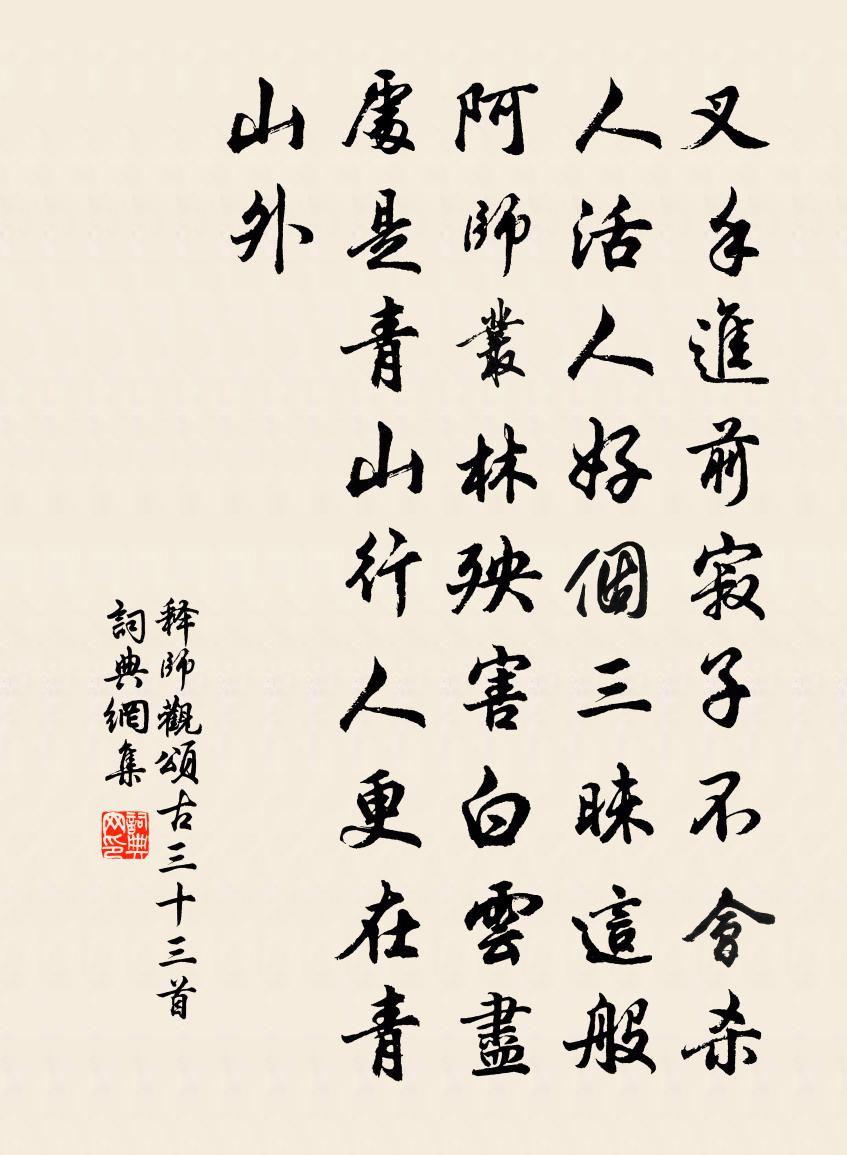 叉手進前寂子不會杀
人活人好個三昧這般
阿師叢林殃害白雲盡
處是青山行人更在青
山外
释師觀頌古三十三首
詞典網集
詞典网印